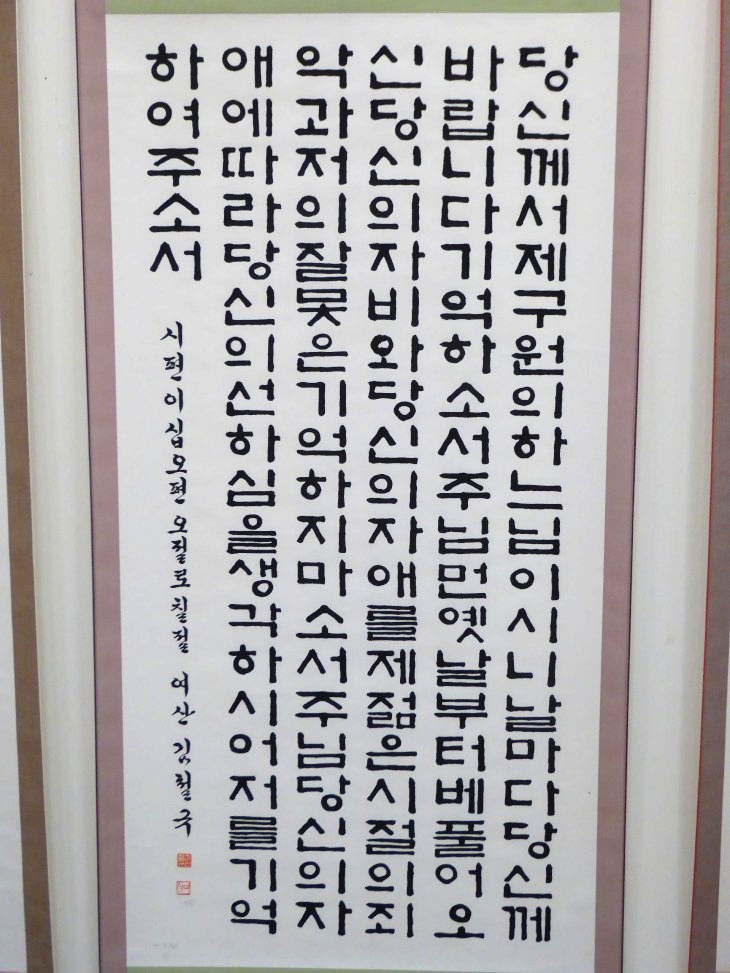 당신께서제구원의하느님이시니날마다당신께
바랍니다기억하소서주님먼옛날부터베풀어오
신당신의자비와당신의자애를제젊은시절의죄
악과저의잘못은기억하지마소서주님당신의자
애에따라당신의선하심을생각하시어저를기억
하여주소서
시편이십오편 오절토칠절 여산 김철국